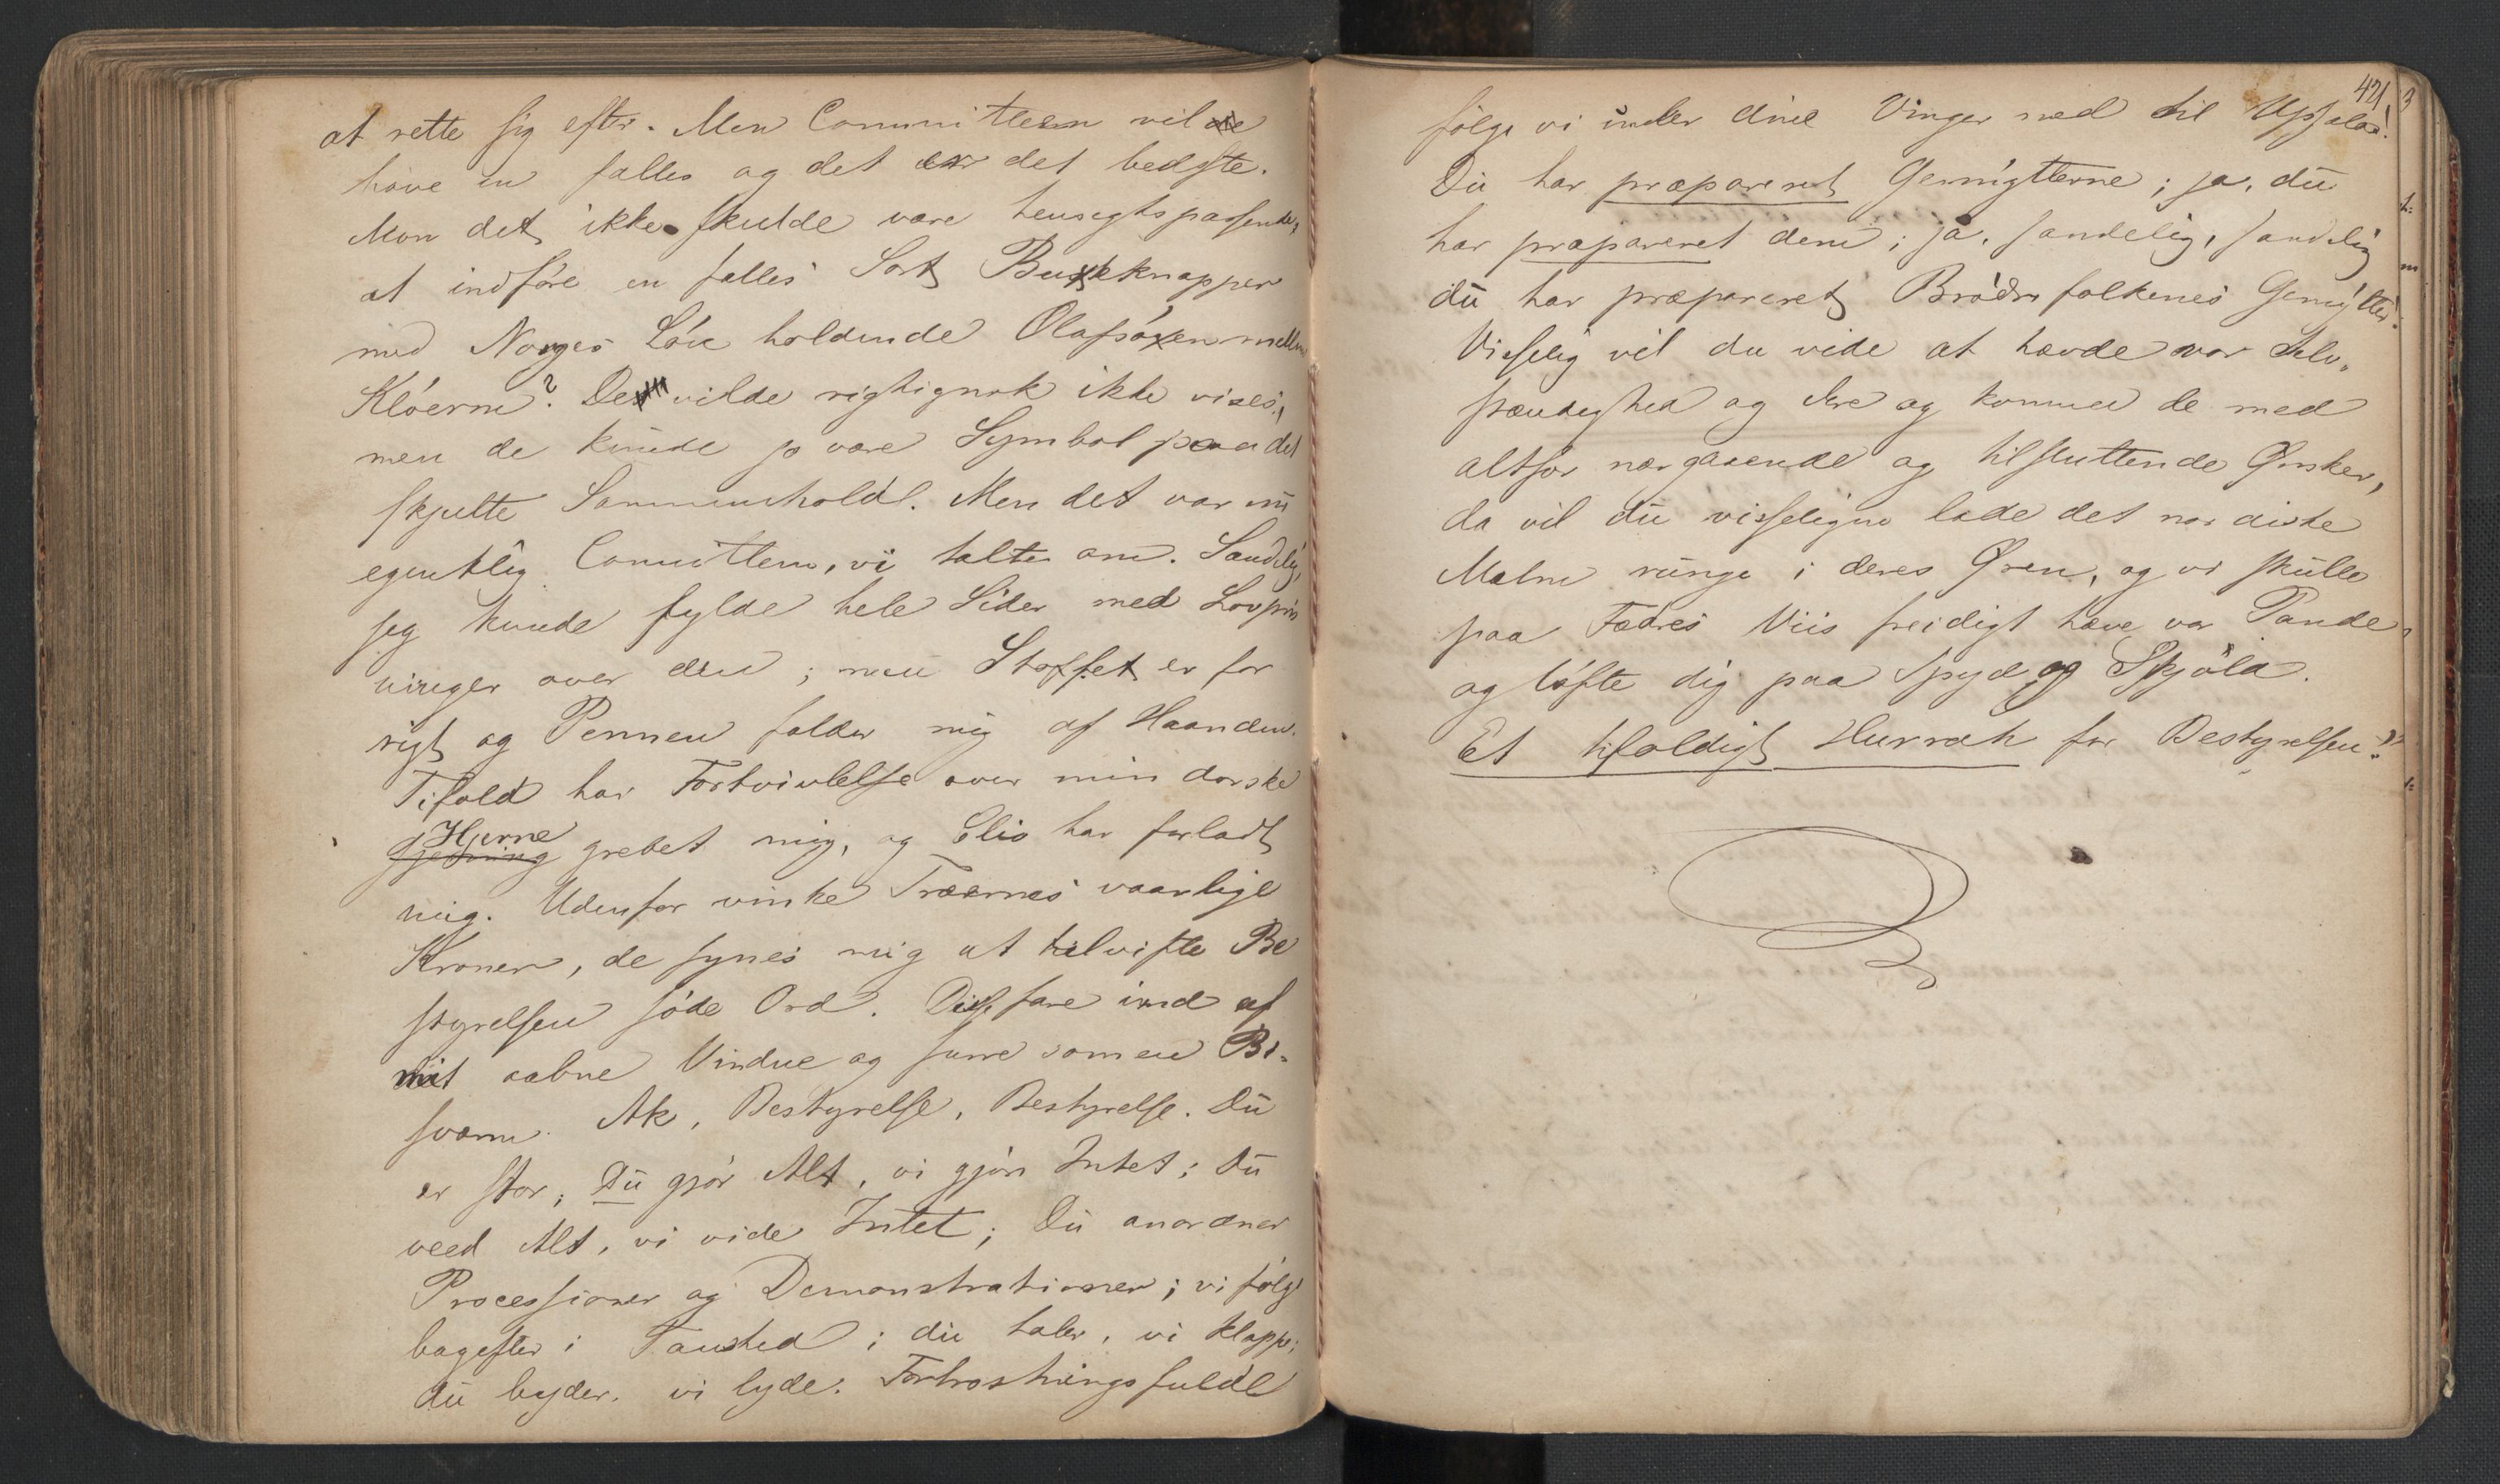 at rette sig efter. Men Committeen vil
have en fælles og det er det bedste.
Mon det ikke skulde være hensigtspassende,
at indføre en fælles Sort Buxeknapper
med Norges Løve holdende Olafsøxen mellem
Kløerne? De vilde rigtignok ikke vises,
men de kunde jo være Symbol paa det
skjulte Sammenhold. Men det var nu
egentlig Comitteen, vi talte om. Sandelig,
jeg kunde fylde hele Sider med Lovpris
ninger over den; men Stoffet er for
rigt og Pennen falder mig af Haanden.
Tifold har Fortvivlelse over min dorske
Hjerne grebet mig, og Clio har forladt
mig. Udenfor vinke Træernes vaarlige
Kroner, de synes mig at tilvifte Be
styrelsen søde Ord. Disse fare ind af
mit aabne Vindue og surre som en Bi-
sværm. Ak, Bestyrelse, Bestyrelse. Du
er stor; Du gjør Alt, vi gjøre Intet; Du
veed Alt, vi vide Intet; Du anordner
Processioner og Demonstrationer; vi følge
bagefter i Taushed; du taler, vi klappe;
du byder, vi lyde. Fortrøstningsfulde
421
følge vi under dine Vinger ned til Upsala!
Du har præpareret Gemytterne; ja, du
har præpareret dem; ja, sandelig, sandelig
du har præpareret Brødrefolkenes Gemytter.
Visselig vil du vide at hævde vor Selv-
stændighed og Ære og komme de med
altfor nærgaaende og tilsluttende Ønsker,
da vil du visseligen lade det nordiske
Malm runge i deres Øren, og vi skulle
paa Fædres Viis freidigt hæve vor Pande
og løfte dig paa Spyd og Skjold.
Et tifoldigt Hurrah for Bestyrelsen!"